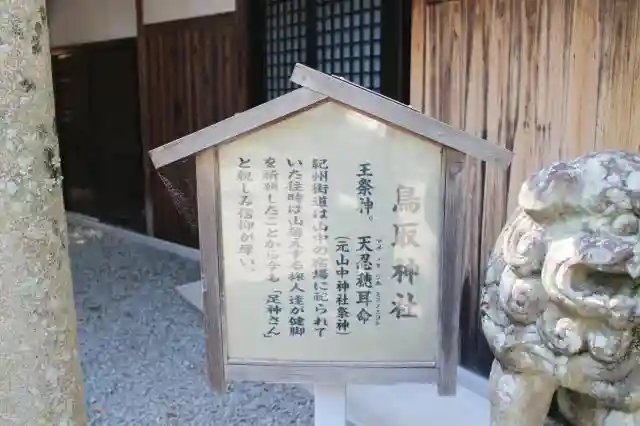 鳥取神社
主祭神。 天忍穂耳命
(元山中神社祭神)
紀州街道は山中の宿場に祀られて
いた往時は山越えする旅人達が健脚
を祈願したことから今も「足神さん」
と親しみ信仰が厚い。